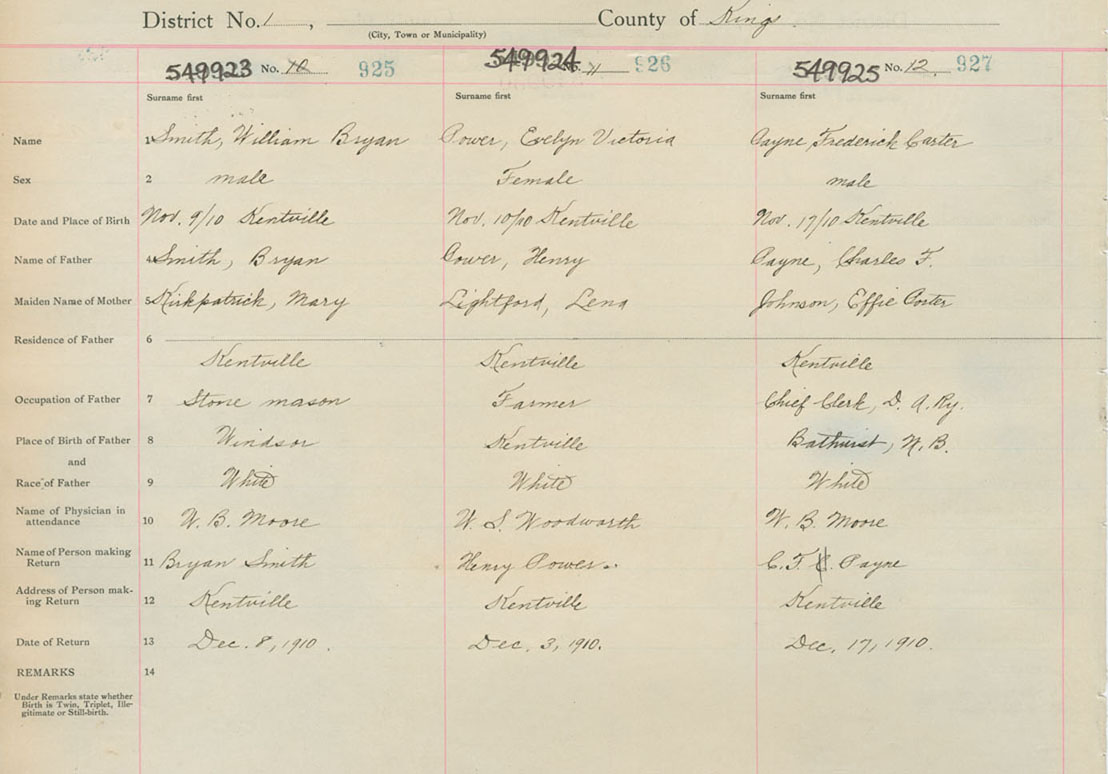 District No. 1 , County of Kings
(City, Town or Municipality)
549923 No. 10 925 549924 No. 11 926 549925 No. 12. 927
Surname first Surname first Surname first
Name 1 Smith, William Bryan Power, Evelyn Victoria Payne, Frederick Carter
Sex 2 male Female male
Date and Place of Birth Nov. 9/10 Kentville Nov. 10/10 Kentville Nov. 17/10 Kentville
Name of Father 4 Smith, Bryan Power, Henry Payne, Charles F.
Maiden Name of Mother 5 Kirkpatrick, Mary Lightford, Lena Johnson, Effie Porter
Residence of Father 6
Kentville Kentville Kentville
Occupation of Father 7 Stone mason Farmer Chief Clerk, D. A. Ry.
Place of Birth of Father 8 Windsor Kentville Bathurst, N. B.
and
Race of Father 9 White White White
Name of Physician in
attendance 10 W. B. Moore W. S. Woodworth W. B. Moore
Name of Person making
Return 11 Bryan Smith Henry Power C. F. Payne
Address of Person mak-
ing Return 12 Kentville Kentville Kentville
Date of Return 13 Dec. 8, 1910. Dec. 3, 1910. Dec. 17, 1910.
REMARKS 14
Under Remarks state whether
Birth is Twin, Triplet, Ille-
gitimate or Still-birth.